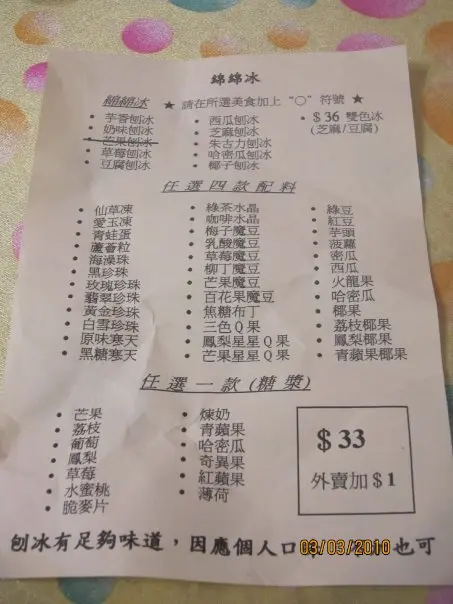 綿綿冰
綿綿冰 ★ 請在所選美食加上 "○" 符號 ★
• 芋香刨冰 • 西瓜刨冰 • $36 雙色冰
• 奶味刨冰 • 芝麻刨冰 (芝麻/豆腐)
• 芒果刨冰 • 朱古力刨冰
• 草莓刨冰 • 哈密瓜刨冰
• 豆腐刨冰 • 椰子刨冰
任選四款配料
• 仙草凍 • 綠茶水晶 • 綠豆
• 愛玉凍 • 咖啡水晶 • 紅豆
• 青蛙蛋 • 梅子魔豆 • 芋頭
• 蘆薈粒 • 乳酸魔豆 • 菠蘿
• 海藻珠 • 草莓魔豆 • 密瓜
• 黑珍珠 • 柳丁魔豆 • 西瓜
• 玫瑰珍珠 • 芒果魔豆 • 火龍果
• 翡翠珍珠 • 百花果魔豆 • 哈密瓜
• 黃金珍珠 • 焦糖布丁 • 椰果
• 白雪珍珠 • 三色Q果 • 荔枝椰果
• 原味寒天 • 鳳梨星星Q果 • 鳳梨椰果
• 黑糖寒天 • 芒果星星Q果 • 青蘋果椰果
任選一款(糖漿)
• 芒果 • 煉奶
• 荔枝 • 青蘋果
• 葡萄 • 哈密瓜
• 鳳梨 • 奇異果
• 草莓 • 紅蘋果
• 水蜜桃 • 薄荷
• 脆麥片
$33
外賣加$1
刨冰有足夠味道，因應個人口 也可
03/03/2010